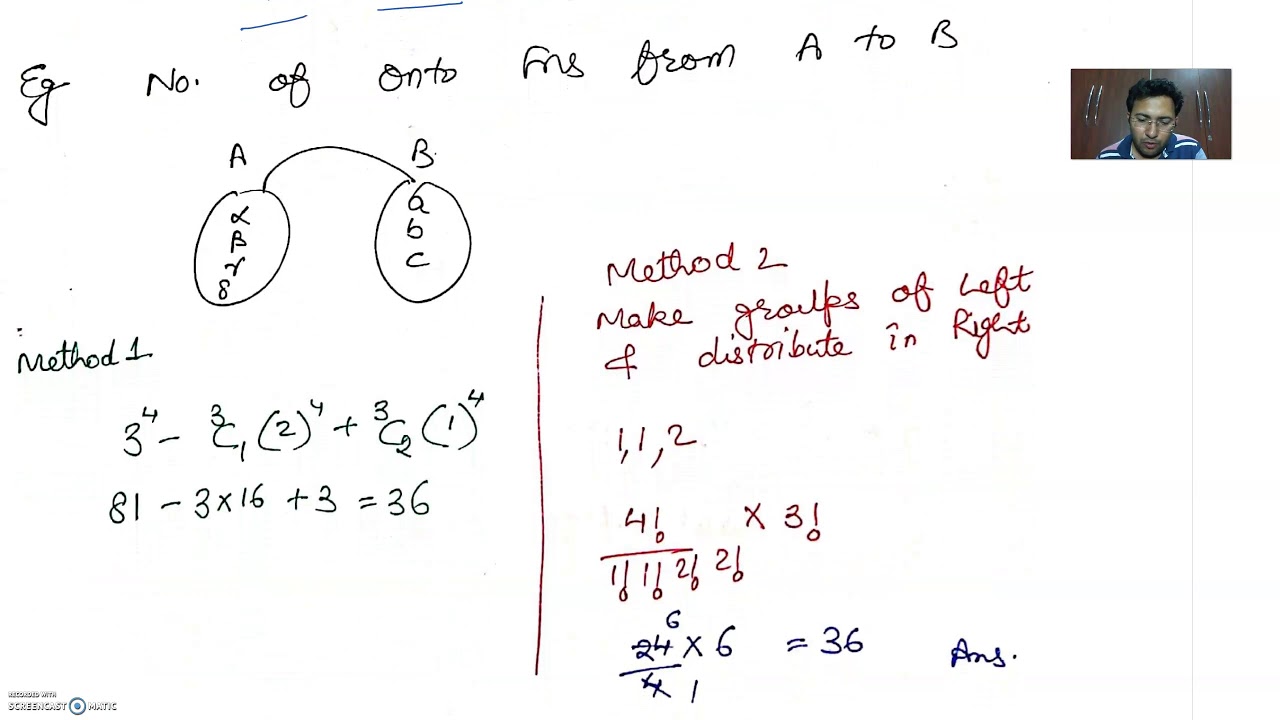 Eg No. of onto fns from A to B
A B
α a
β b
γ c
δ
Method 1
3⁴ - ³C₁(2)⁴ + ³C₂(1)⁴
81 - 3×16 + 3 = 36
Method 2
Make groups of Left
& distribute in Right
1,1,2
4! × 3!
1! 1! 2! 2!
6
24 × 6 = 36 Ans.
4 1
RECORDED WITH
SCREENCAST MATIC